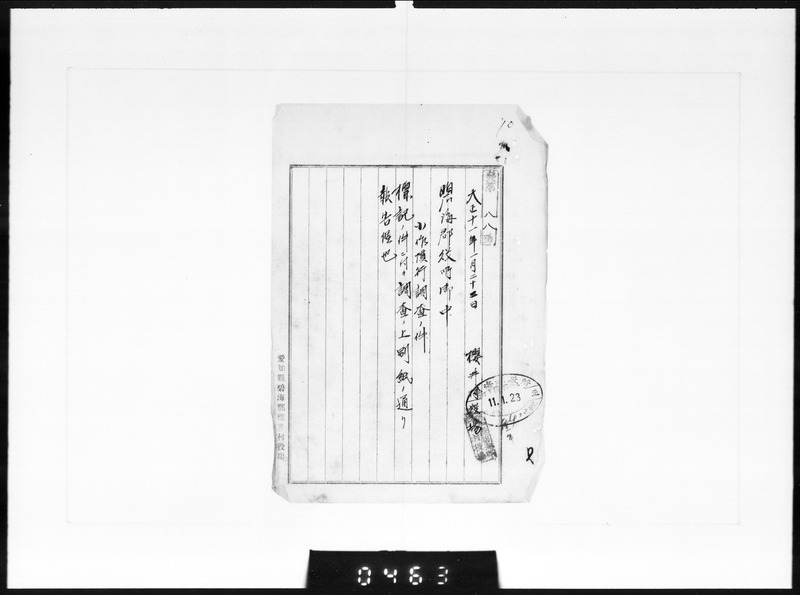 第八八號
大正十一年一月二十三日
櫻井村役場
碧海郡役所御中
小作慣行調査ノ件
標記ノ件ニ付キ調査ノ上別紙ノ通リ
報告候也
11.1.23
愛知縣碧海郡櫻井村役場
0463